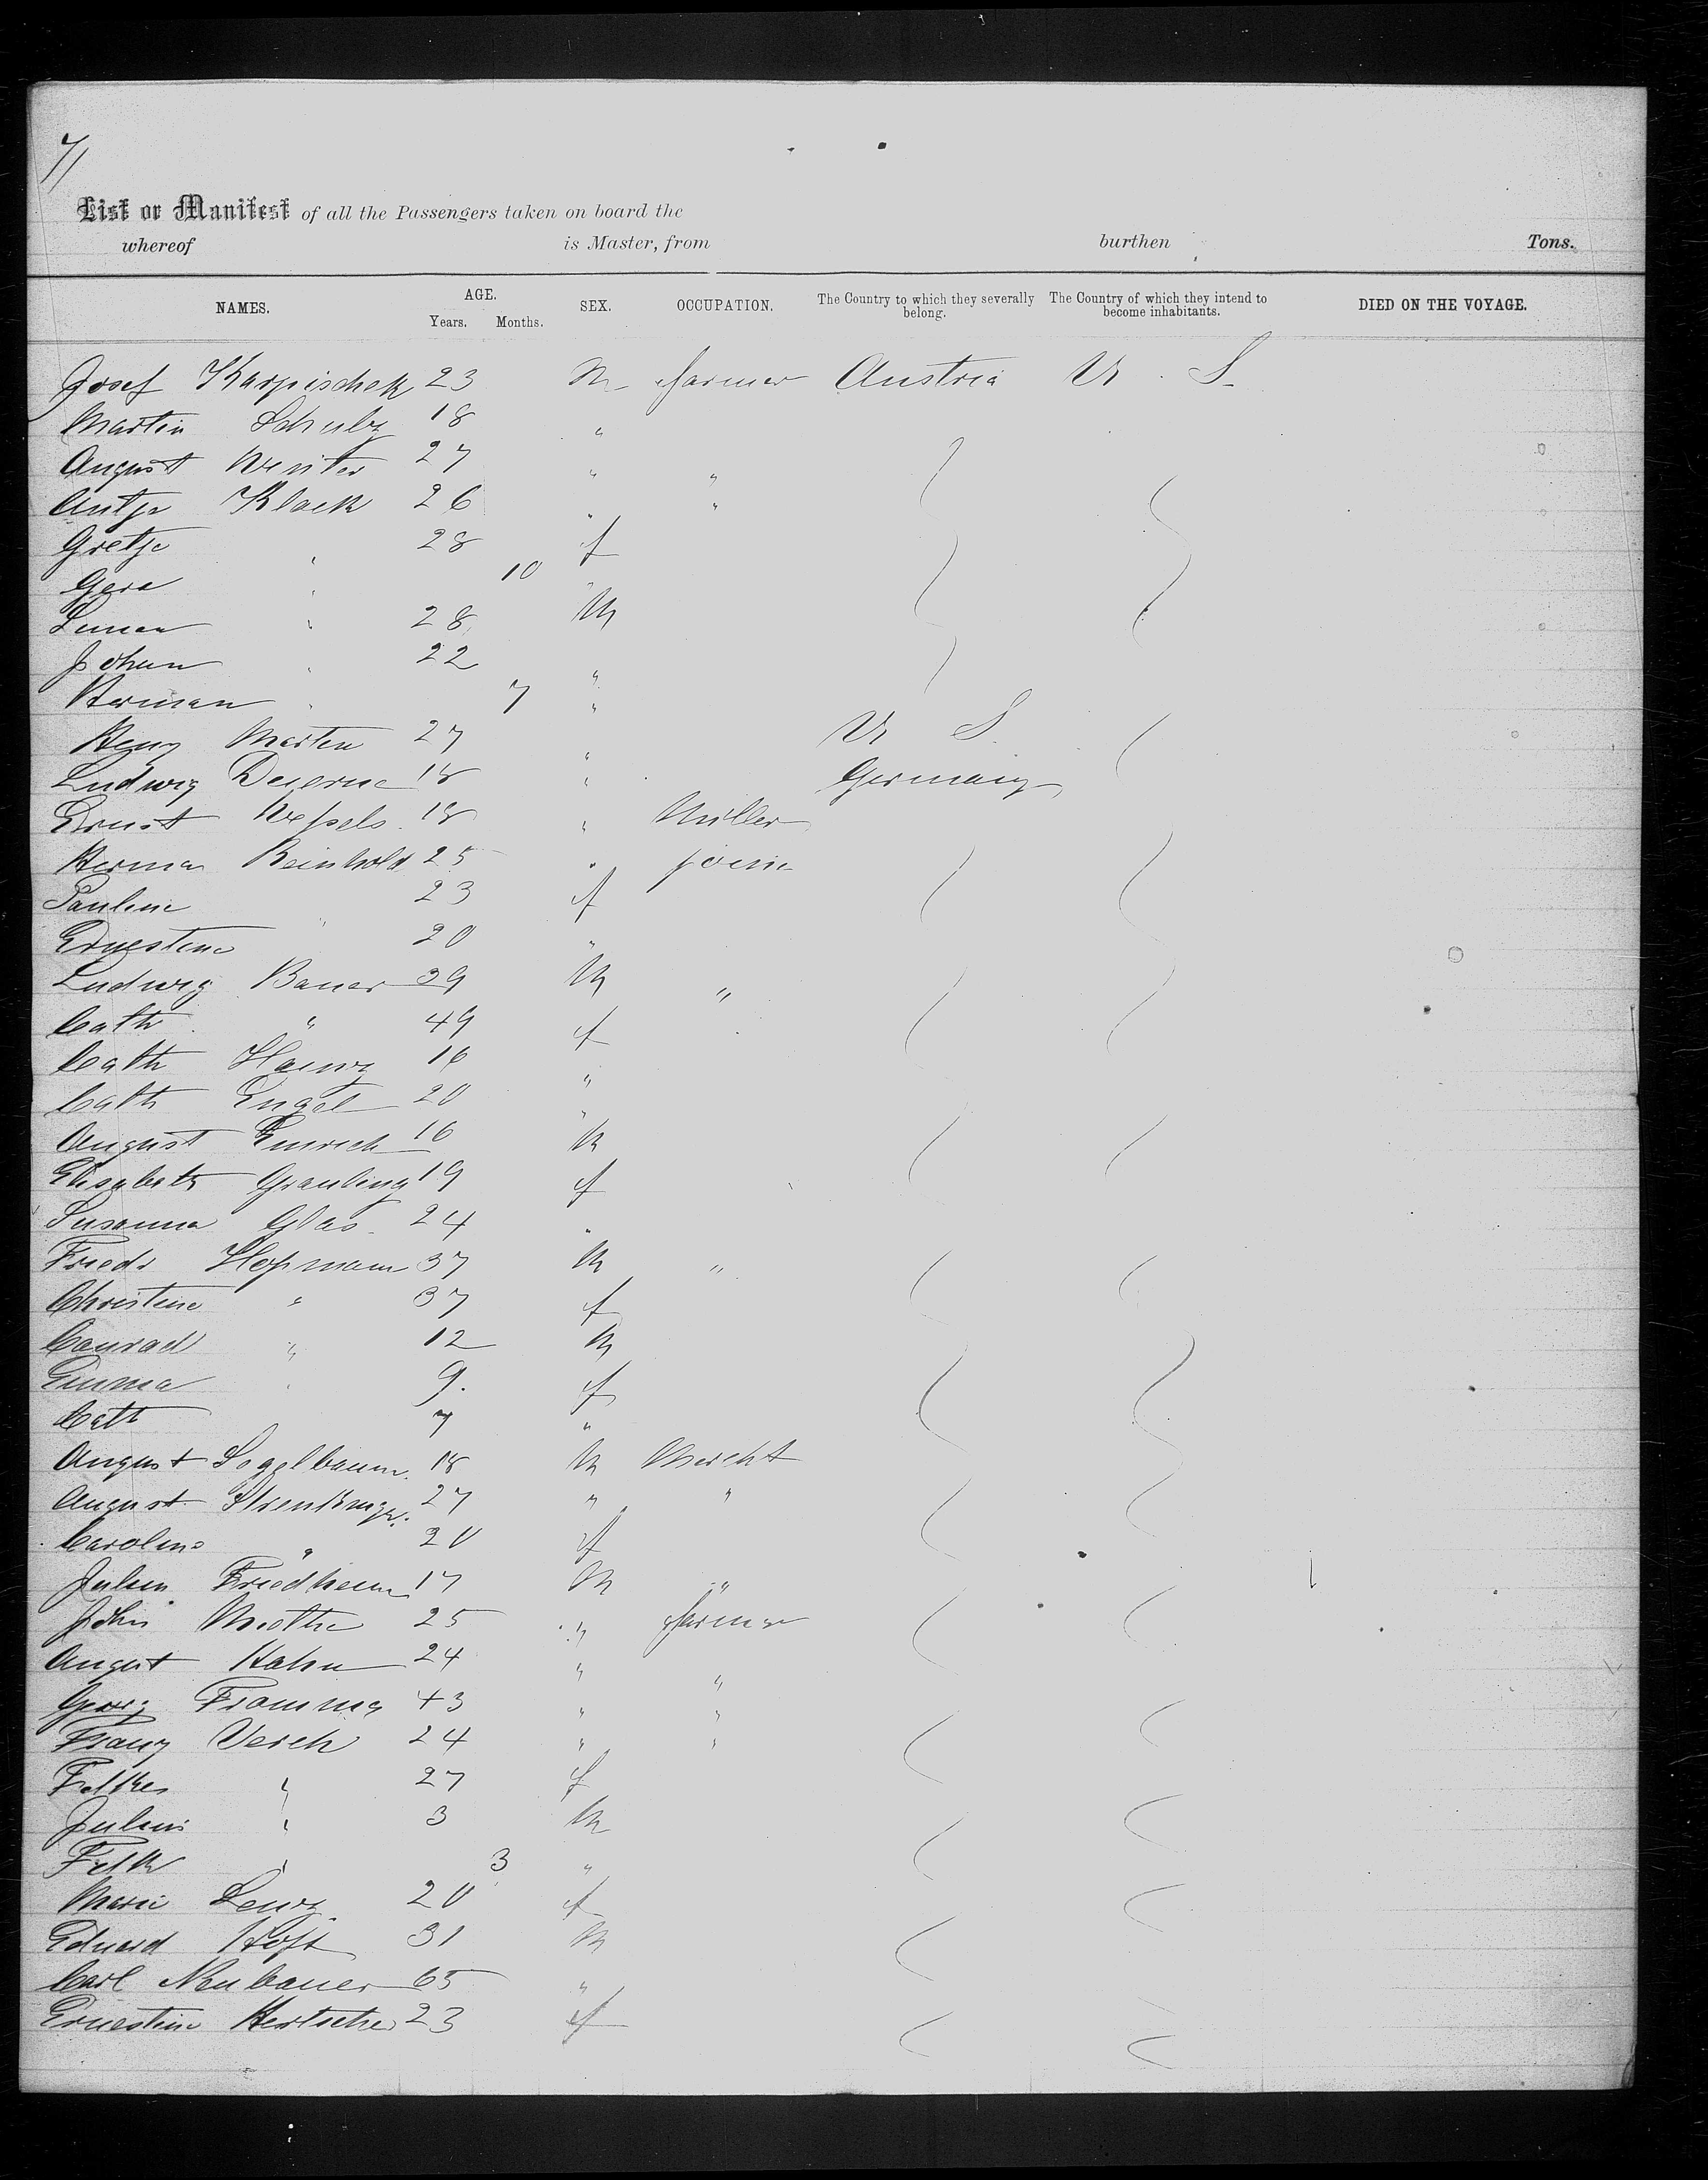 71
List or Manifest of all the Passengers taken on board the
whereof is Master, from burthen Tons.
NAMES. AGE. Years. Months. SEX. OCCUPATION. The Country to which they severally belong. The Country of which they intend to become inhabitants. DIED ON THE VOYAGE.
Josef Karpischek 23 M farmer Austria U. S.
Martin Schulz 18 "
August Winter 27 " "
Antje Klaek 26 " "
Gretje " 28 f
" 10 "
" 28 M
Johann " 22 "
Herman " 7 "
Henry Marten 27 " U S.
Ludwig 18 " Germany
Ernst Wessels 18 " Miller
Herman Reinhold 25 " joiner
Pauline 23 f
Ernestine " 20 "
Ludwig Bauer 39 M "
Cath " 49 f
Cath 16 "
Cath Engel 20 "
August Emrich 16 M
Elisabeth Grauling 19 f
Susanna Glas 24 "
Friedr Hopmann 37 M "
Christine " 37 f
Conrad " 12 M
Emma " 9. f
Cath 7 "
August 18 M Mercht
August 27 " "
Caroline " 20 f
Julius Friedheim 17 M "
John 25 " farmer
August Hahn 24 " "
Georg 43 " "
Franz Verch 24 " "
" 27 f
Julius " 3 M
" 3 "
Marie Lenz 20 f
Eduard Hoft 31 M
Carl Neubauer 65 "
Ernestine 23 f